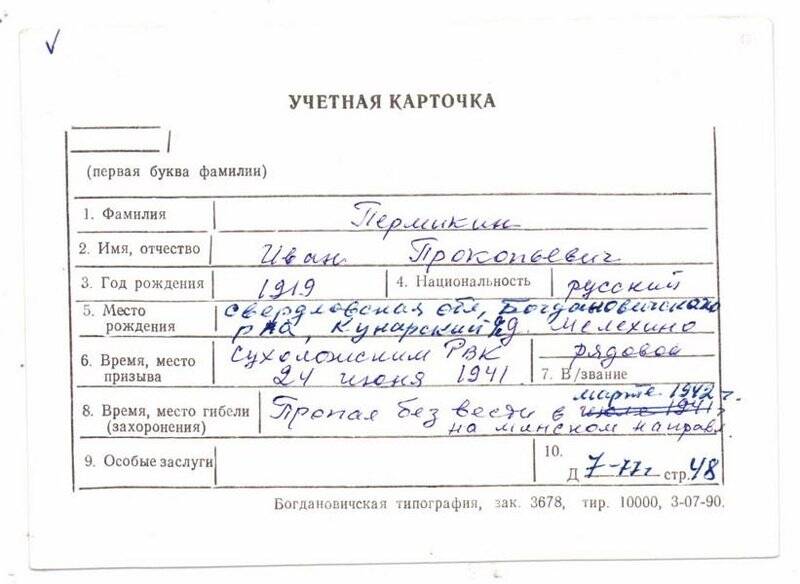 УЧЕТНАЯ КАРТОЧКА
(первая буква фамилии)
1. Фамилия Пермикин
2. Имя, отчество Иван Прокопьевич
3. Год рождения 1919 4. Национальность русский
5. Место рождения Свердловская обл, Богдановичского
р-на, Кунарский д. Мелехино
6. Время, место призыва Сухоложским РВК
24 июня 1941.
7. В/звание рядовой
8. Время, место гибели (захоронения) Пропал без вести в июле 1941 г марте 1942 г.
на минском направл.
9. Особые заслуги
10.
Д 7-77г стр. 48
Богдановичская типография, зак. 3678, тир. 10000, 3-07-90.